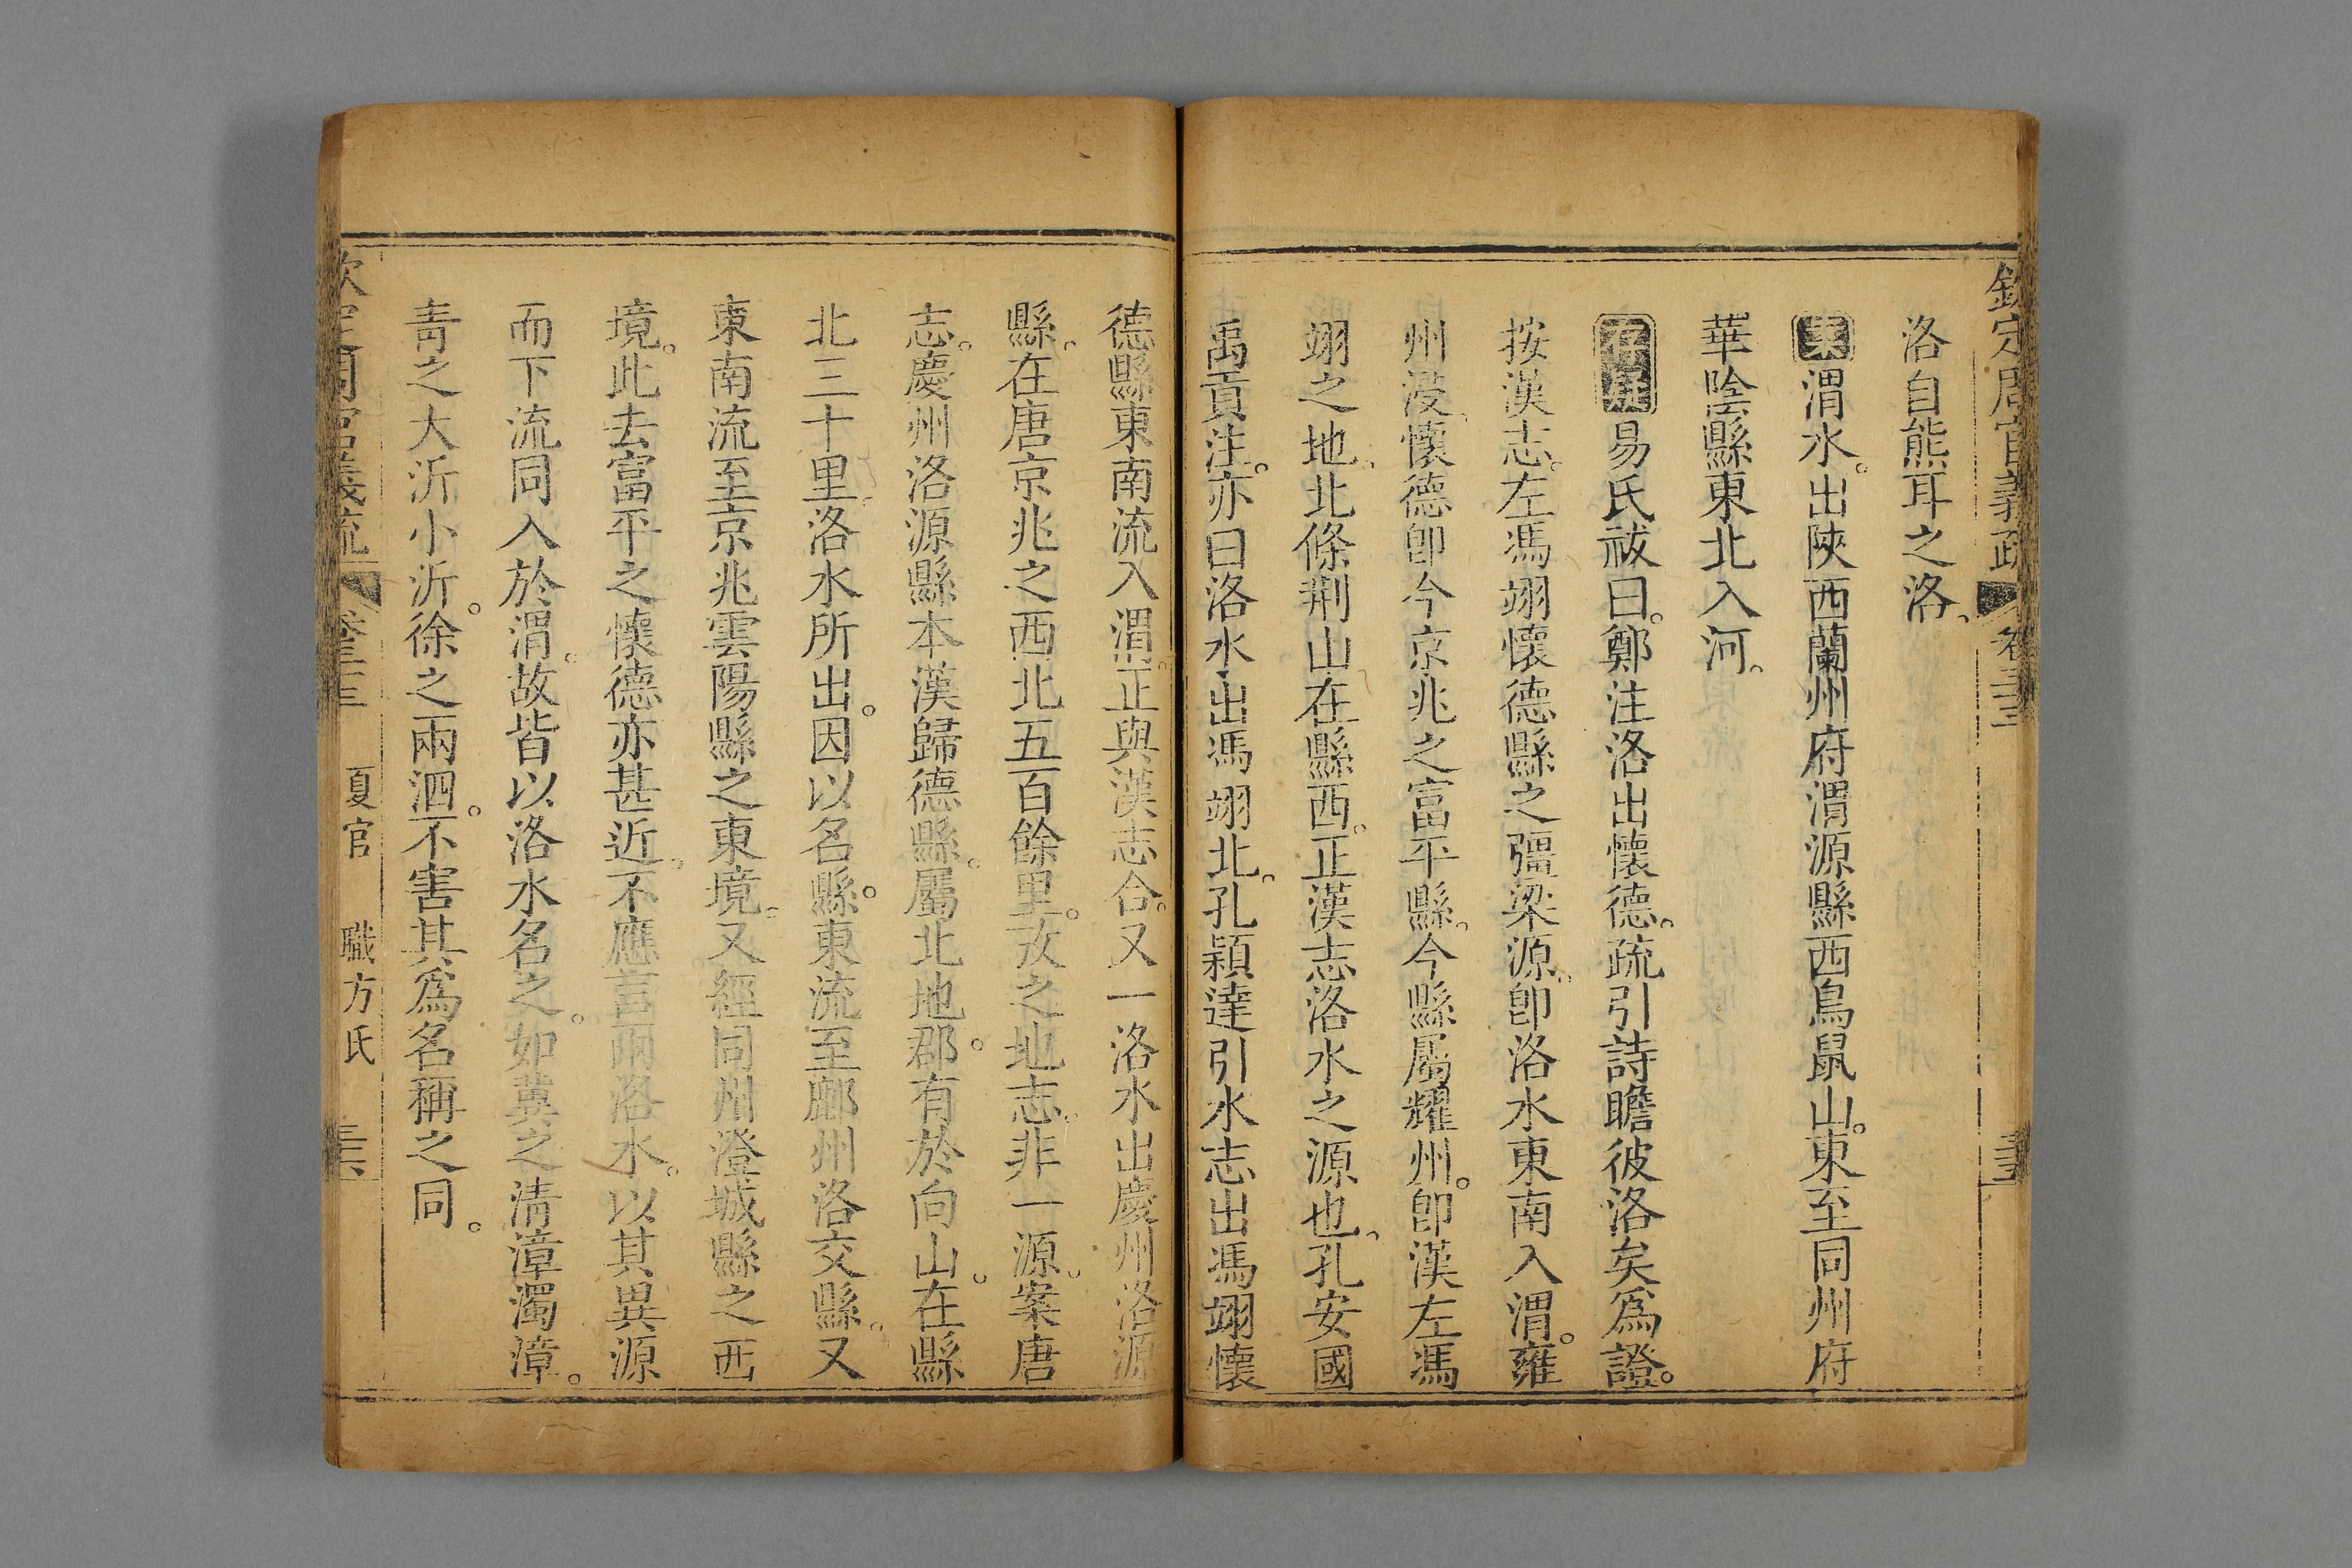 欽定周官義疏 卷三十三
洛自熊耳之洛。
案渭水。出陝西蘭州府渭源縣西鳥鼠山。東至同州府
華陰縣東北入河。
存疑易氏祓曰。鄭注洛出懷德。疏引詩瞻彼洛矣爲證。
按漢志。左馮翊懷德縣之彊梁源。卽洛水東南入渭。雍
州浸。懷德卽今京兆之富平縣。今縣屬耀州。卽漢左馮
翊之地。北條荆山在縣西。正漢志洛水之源也。孔安國
禹貢注。亦曰洛水出馮翊北。孔穎達引水志出馮翊懷
德縣東南流入渭。正與漢志合。又一洛水出慶州洛源
縣。在唐京兆之西北五百餘里。攷之地志。非一源。案唐
志。慶州洛源縣本漢歸德縣。屬北地郡。有於向山。在縣
北三十里。洛水所出。因以名縣。東流至鄜州洛交縣。又
東南流至京兆雲陽縣之東境。又經同州澄城縣之西
境。此去富平之懷德亦甚近。不應言兩洛水。以其異源
而下流同入於渭。故皆以洛水名之。如冀之清漳濁漳。
青之大沂小沂。徐之兩泗。不害其爲名稱之同。
欽定周官義疏 卷三十三 夏官 職方氏